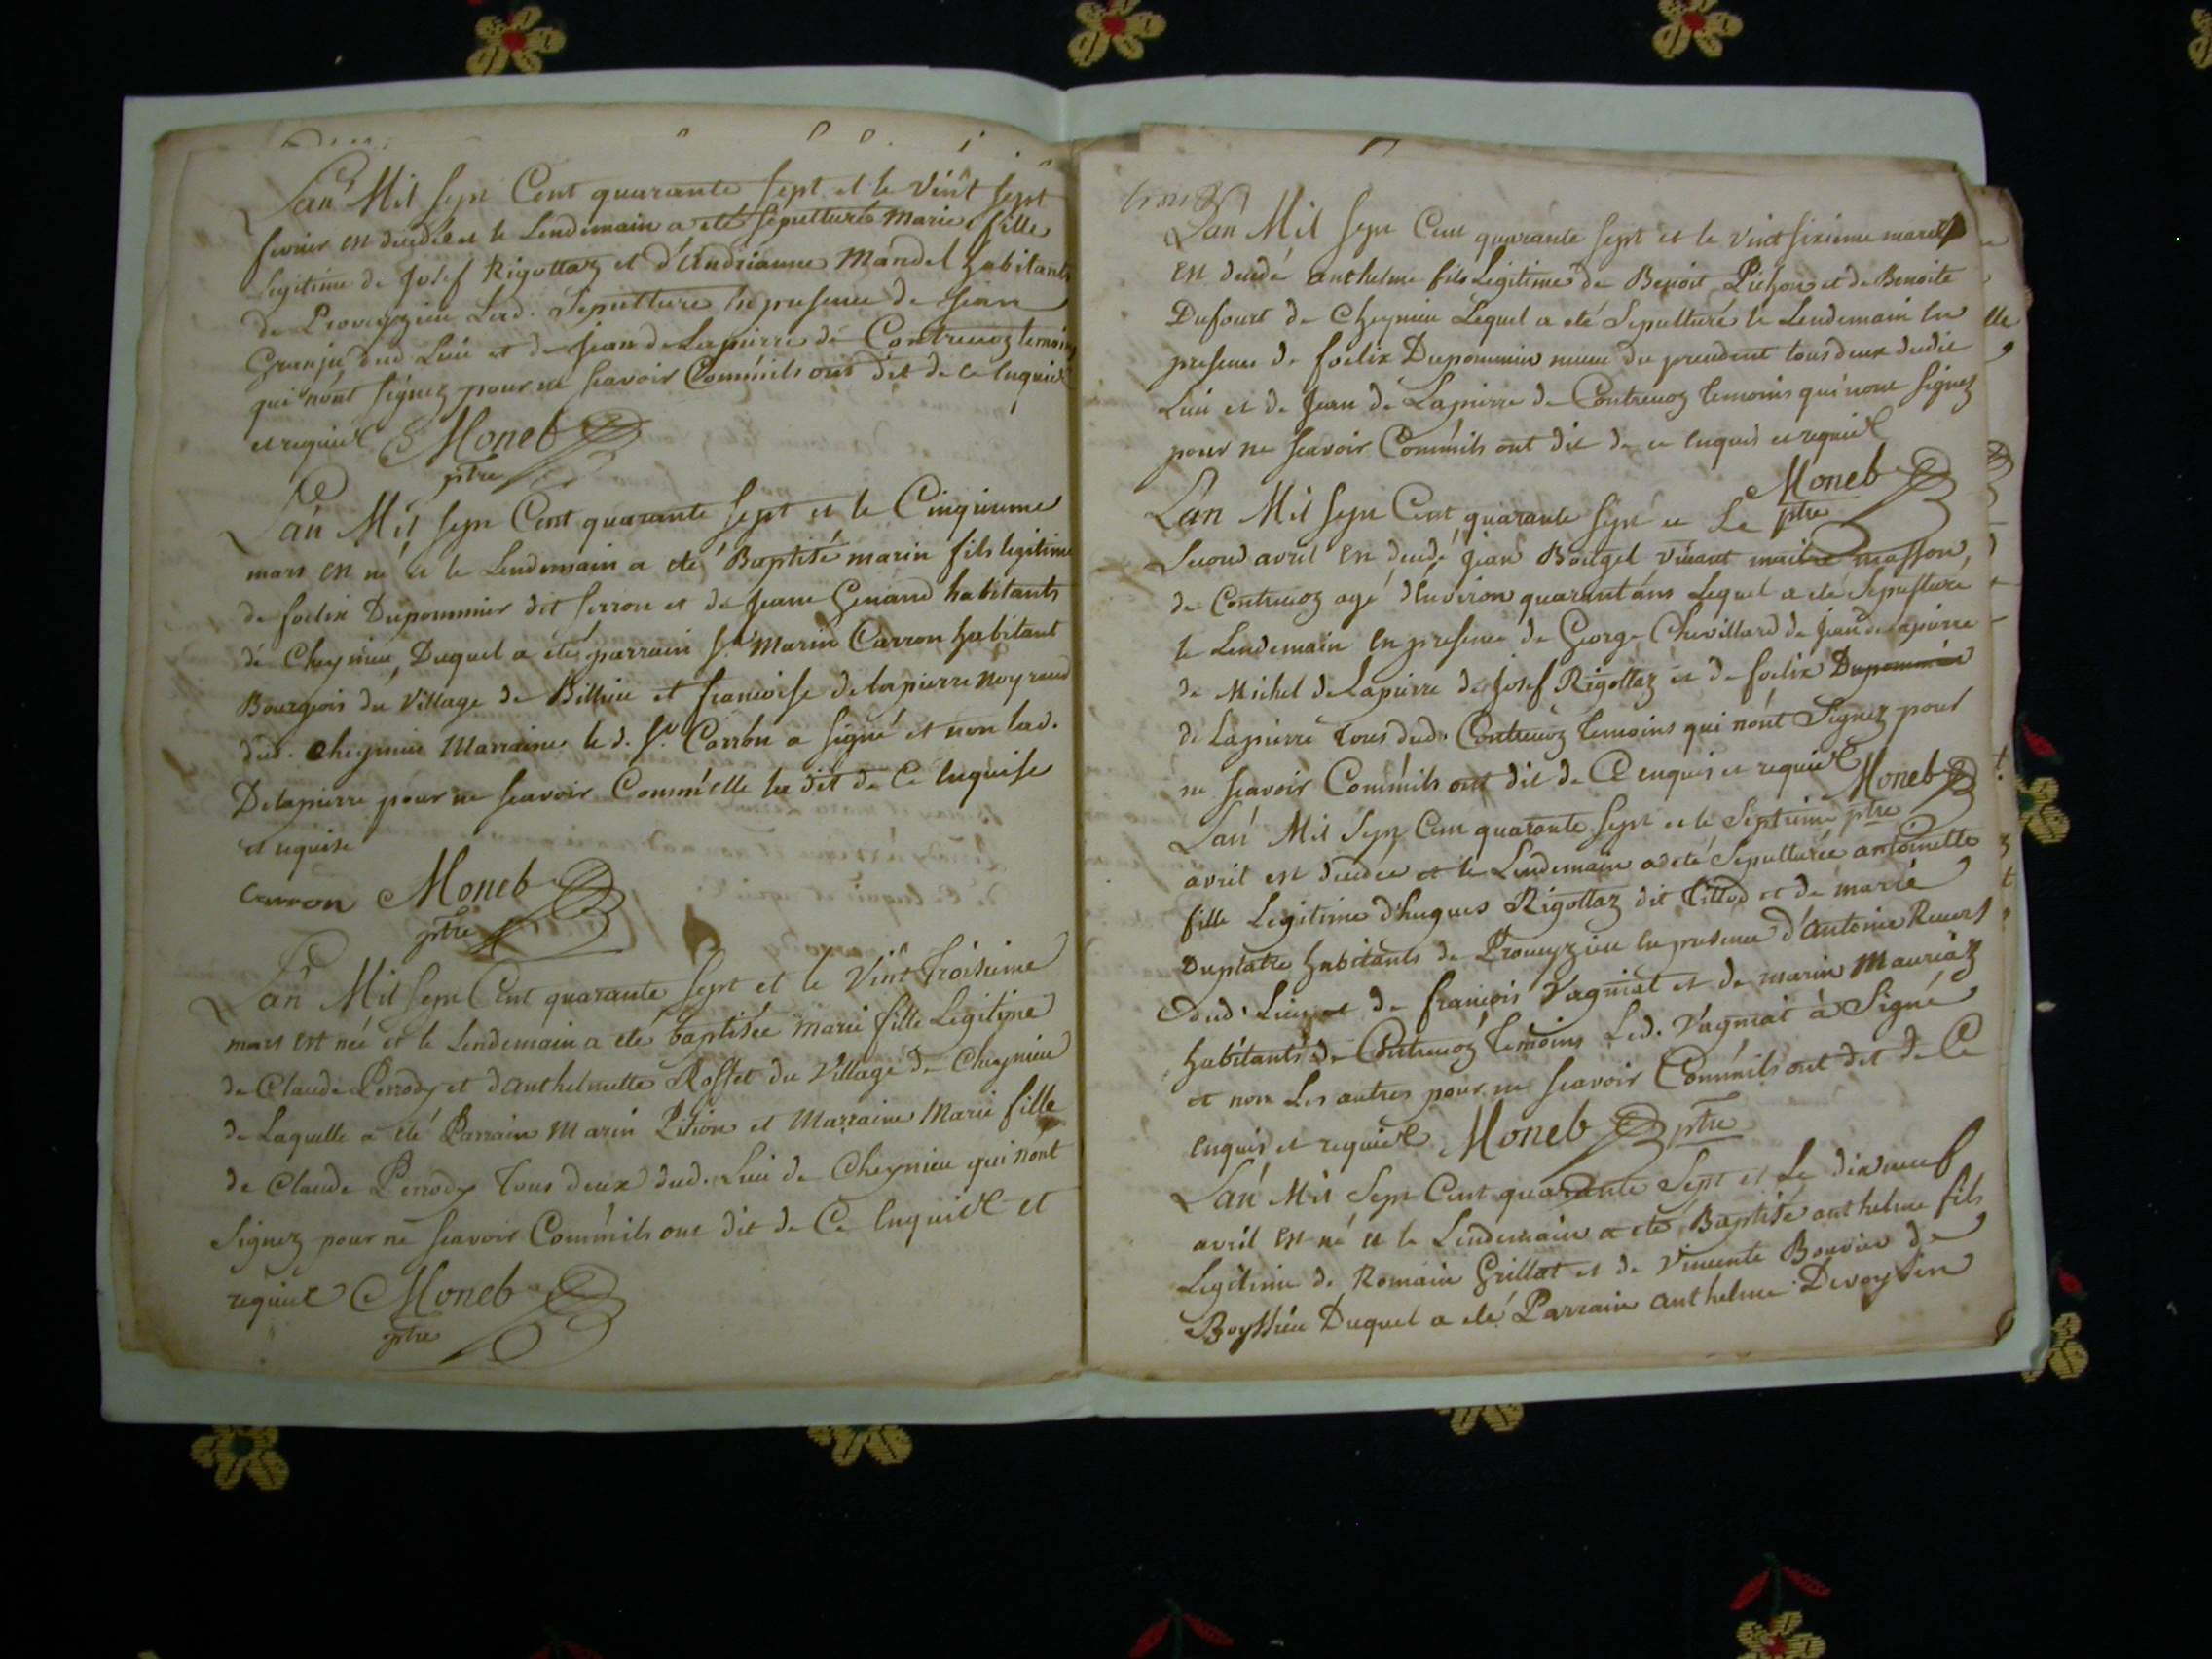 L'an Mil sept Cent quarante sept et le vint sept
fevrier est decedée et le Lendemain a eté sepulturée marie fille
legitime de Josef Rigottaz et d'andrianne Mandel habitants
de Proveyzieu Lad. Sepulture en presence de jean
Granje dud Lieu et de jean de Lapierre de Contrevoz temoins
qui n'ont signez pour ne scavoir Comm'ils ont dit de ce enquis
et requis Moneb
ptre
L'an Mil sept Cent quarante sept et le Cinquieme
mars est né et le Lendemain a eté Baptisé marin fils legitime
de foelix Dupommier dit ferron et de jeane Genand habitants
de Cheynieu, Duquel a eté parrain sr. Marin Carron habitant
Bourgeois du village de Billieu et francoise delapierre
dud. Cheynieu Marraine led. sr. Carron a signé et non lad.
Delapierre pour ne scavoir Comm'elle la dit de Ce enquise
et requise
Carron Moneb
ptre
L'an Mil sept Cent quarante sept et le vint troisieme
mars est née et le Lendemain a eté baptisée marie fille Legitime
de Claude Perrody et d'anthelmette Rosset du village de Cheynieu
de Laquelle a eté Parrain Marin Pition et Marraine Marie fille
de Claude Perrody tous deux dud. Lieu de Cheynieu qui n'ont
signez pour ne scavoir Comm'ils ont dit de Ce enquis et
requis Moneb
ptre
L'an Mil sept Cent quarante sept et le vint sixieme mars
est decedé anthelme fils Legitime de Benoit Pichon et de Benoite
Dufourt de Cheynieu Lequel a eté Sepulturé le Lendemain en
presence de foelix Dupommier tous deux dudit
Lieu et de Jean de Lapierre de Contrevoz temoins qui n'ont signez
pour ne scavoir Comm'ils ont dit de ce enquis et requis
Moneb
ptre
L'an Mil sept Cent quarante sept et Le
Second avril est decedé jean Bougel vivant maitre masson
de Contrevoz agé d'environ quarant'ans Lequel a eté Sepulturé
le Lendemain en presence de George Chevillard de jean delapierre
de Michel de Lapierre de Josef Rigottaz et de foelix Dupommier
de Lapierre tous dud. Contrevoz temoins qui n'ont Signez pour
ne scavoir Comm'ils ont dit de Ce enquis et requis Moneb
ptre
L'an Mil Sept Cent quarante sept et le Septieme
avril est decedée et le Lendemain a eté Sepulturée antoinette
fille Legitime d'hugues Rigottaz dit Tillod et de marie
Duplatre habitants de Proveyzieu en presence d'antoine Revers
dud. Lieu et de francois Vagniat et de marin Mauriaz
habitants de Contrevoz temoins Led. Vagniat a Signé
et non Les autres pour ne scavoir Comm'ils ont dit de Ce
enquis et requis Moneb ptre
L'an Mil Sept Cent quarante Sept et Le dixneuf
avril est né et le Lendemain a eté Baptisé anthelme fils
Legitime de Romain Grillat et de vincente Bouvier de
Boyssieu Duquel a eté Parrain anthelme Devoysin